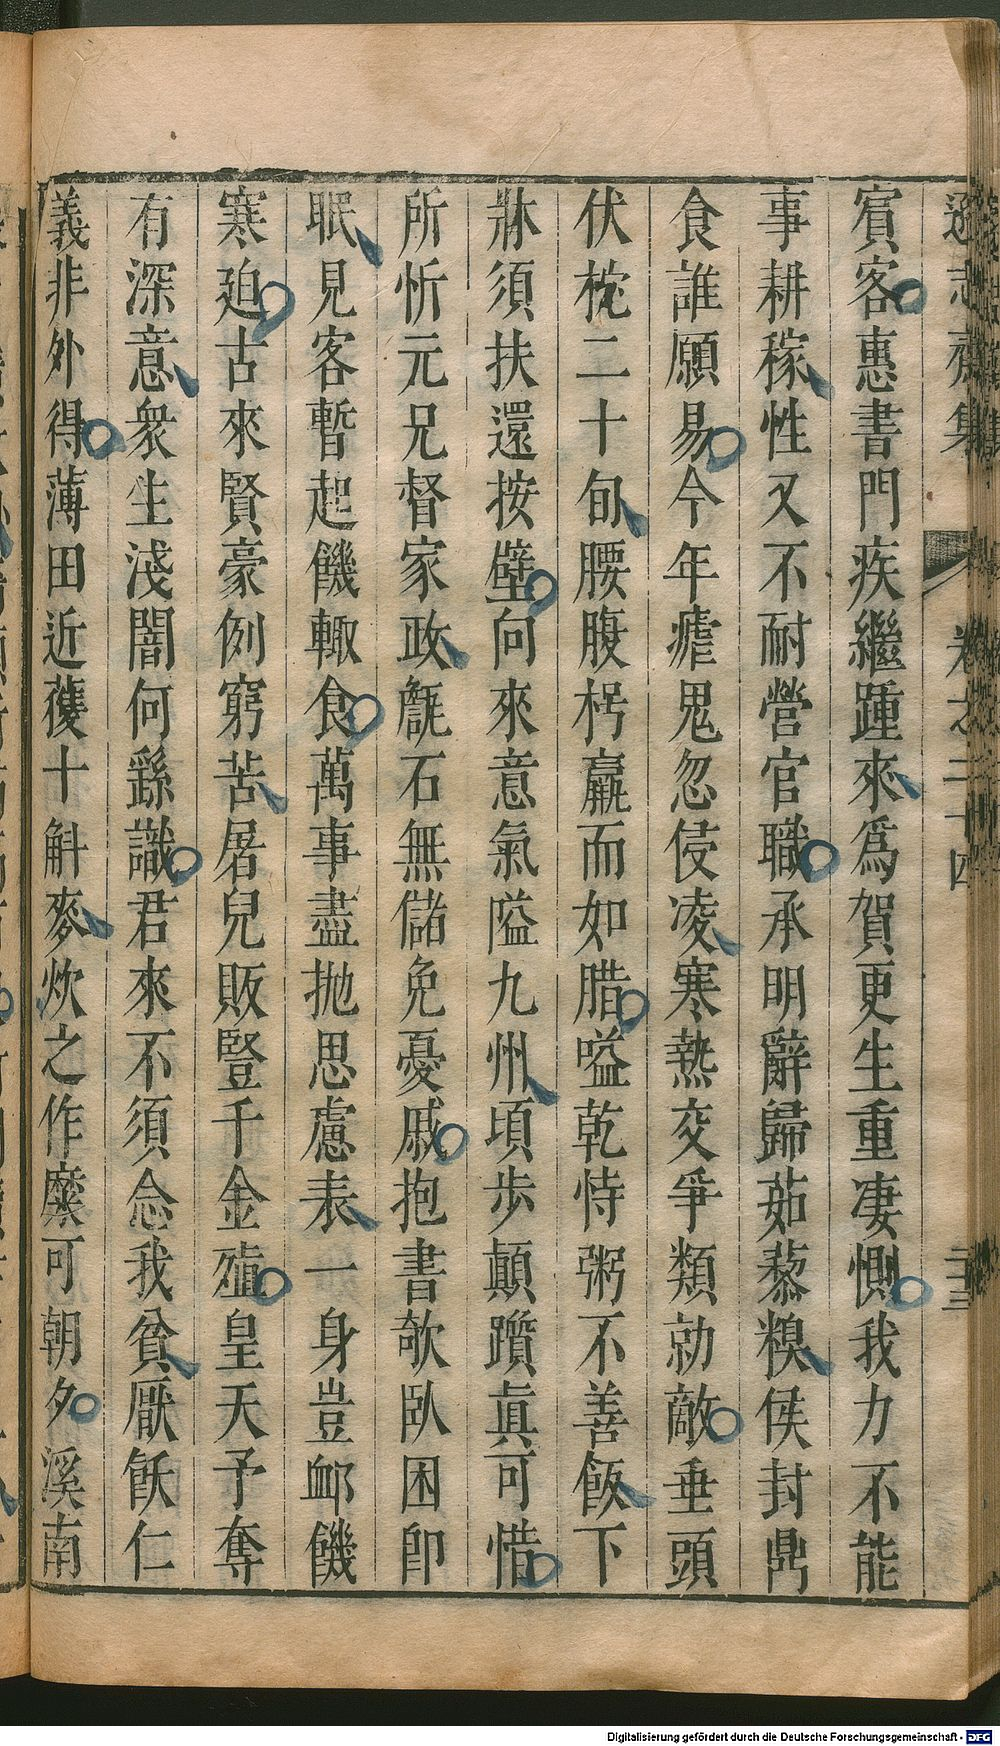 遜志齋集 卷之二十四 二十三
賓客惠書門疾繼踵來爲賀更生重凄惻我力不能
事耕稼性又不耐營官職承明辭歸茹藜糗侯封鼎
食誰願易今年瘧鬼忽侵凌寒熱交爭類勍敵垂頭
伏枕二十旬腰腹枵羸而如腊嗌乾恃粥不善飯下
牀須扶還按壁向來意氣隘九州頃步顚躓眞可惜
所忻元兄督家政甔石無儲免憂戚抱書欹臥困卽
眠見客暫起饑輙食萬事盡拋思慮表一身豈卹饑
寒廹古來賢豪例窮苦屠兒販豎千金殖皇天予奪
有深意衆生淺闇何繇識君來不須念我貧厭飫仁
義非外得薄田近穫十斛麥炊之作糜可朝夕溪南
Digitalisierung gefördert durch die Deutsche Forschungsgemeinschaft - DFG